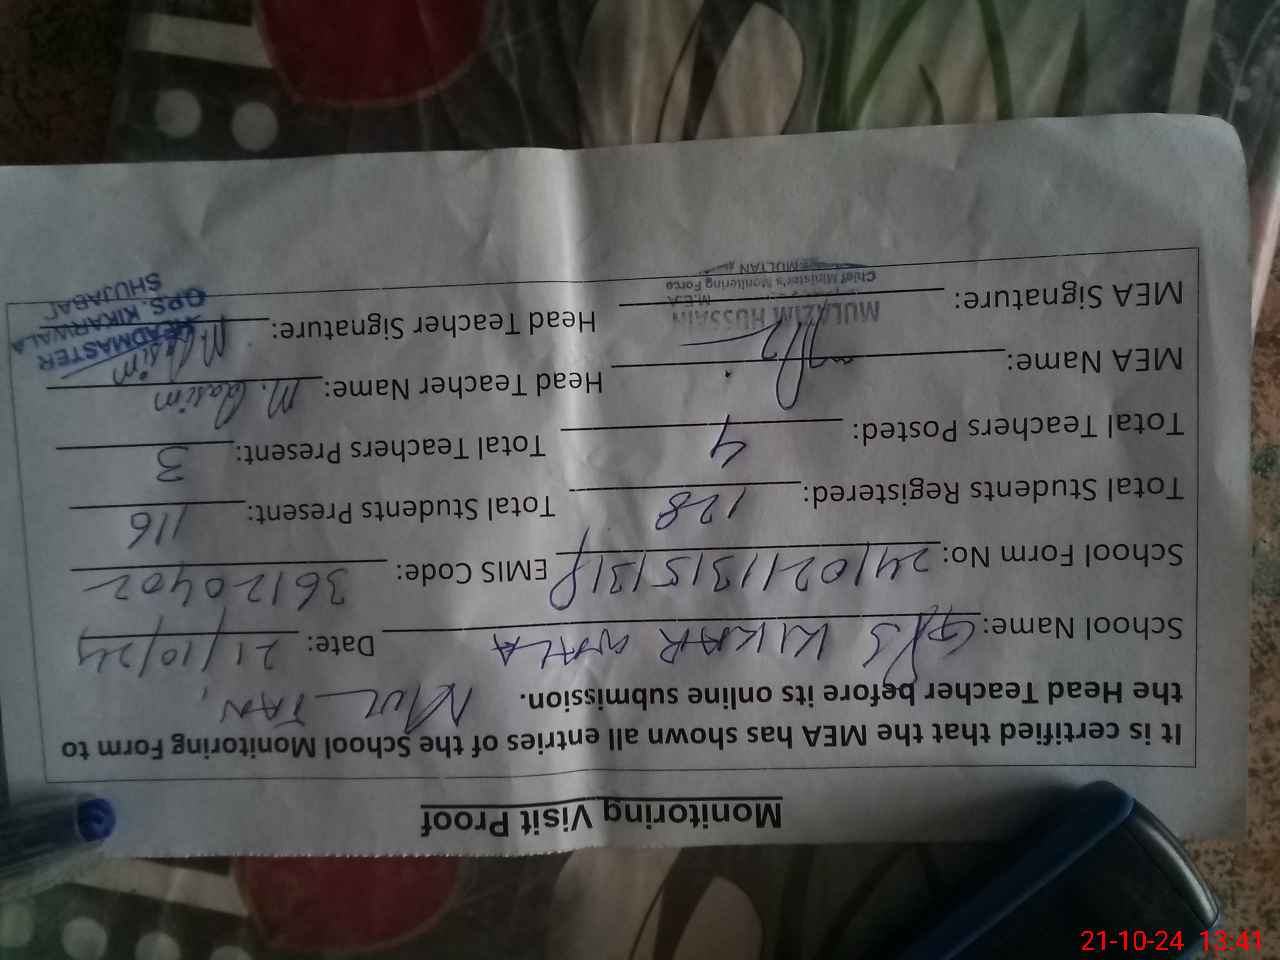 Monitoring Visit Proof
It is certified that the MEA has shown all entries of the School Monitoring Form to
the Head Teacher before its online submission. MUL TAN,
School Name: GPS KIKAR WALA Date: 21/10/24
School Form No: EMIS Code: 36120402
Total Students Registered: 128 Total Students Present: 116
Total Teachers Posted: 4 Total Teachers Present: 3
MEA Name: Head Teacher Name: M. Qasim
MEA Signature: Head Teacher Signature: M. Qasim
MULAZIM HUSSAIN
M.E.A
Chief Minister's Monitoring Force
MULTAN
HEADMASTER
GPS. KIKARWALA
SHUJABAD
21-10-24 13:41